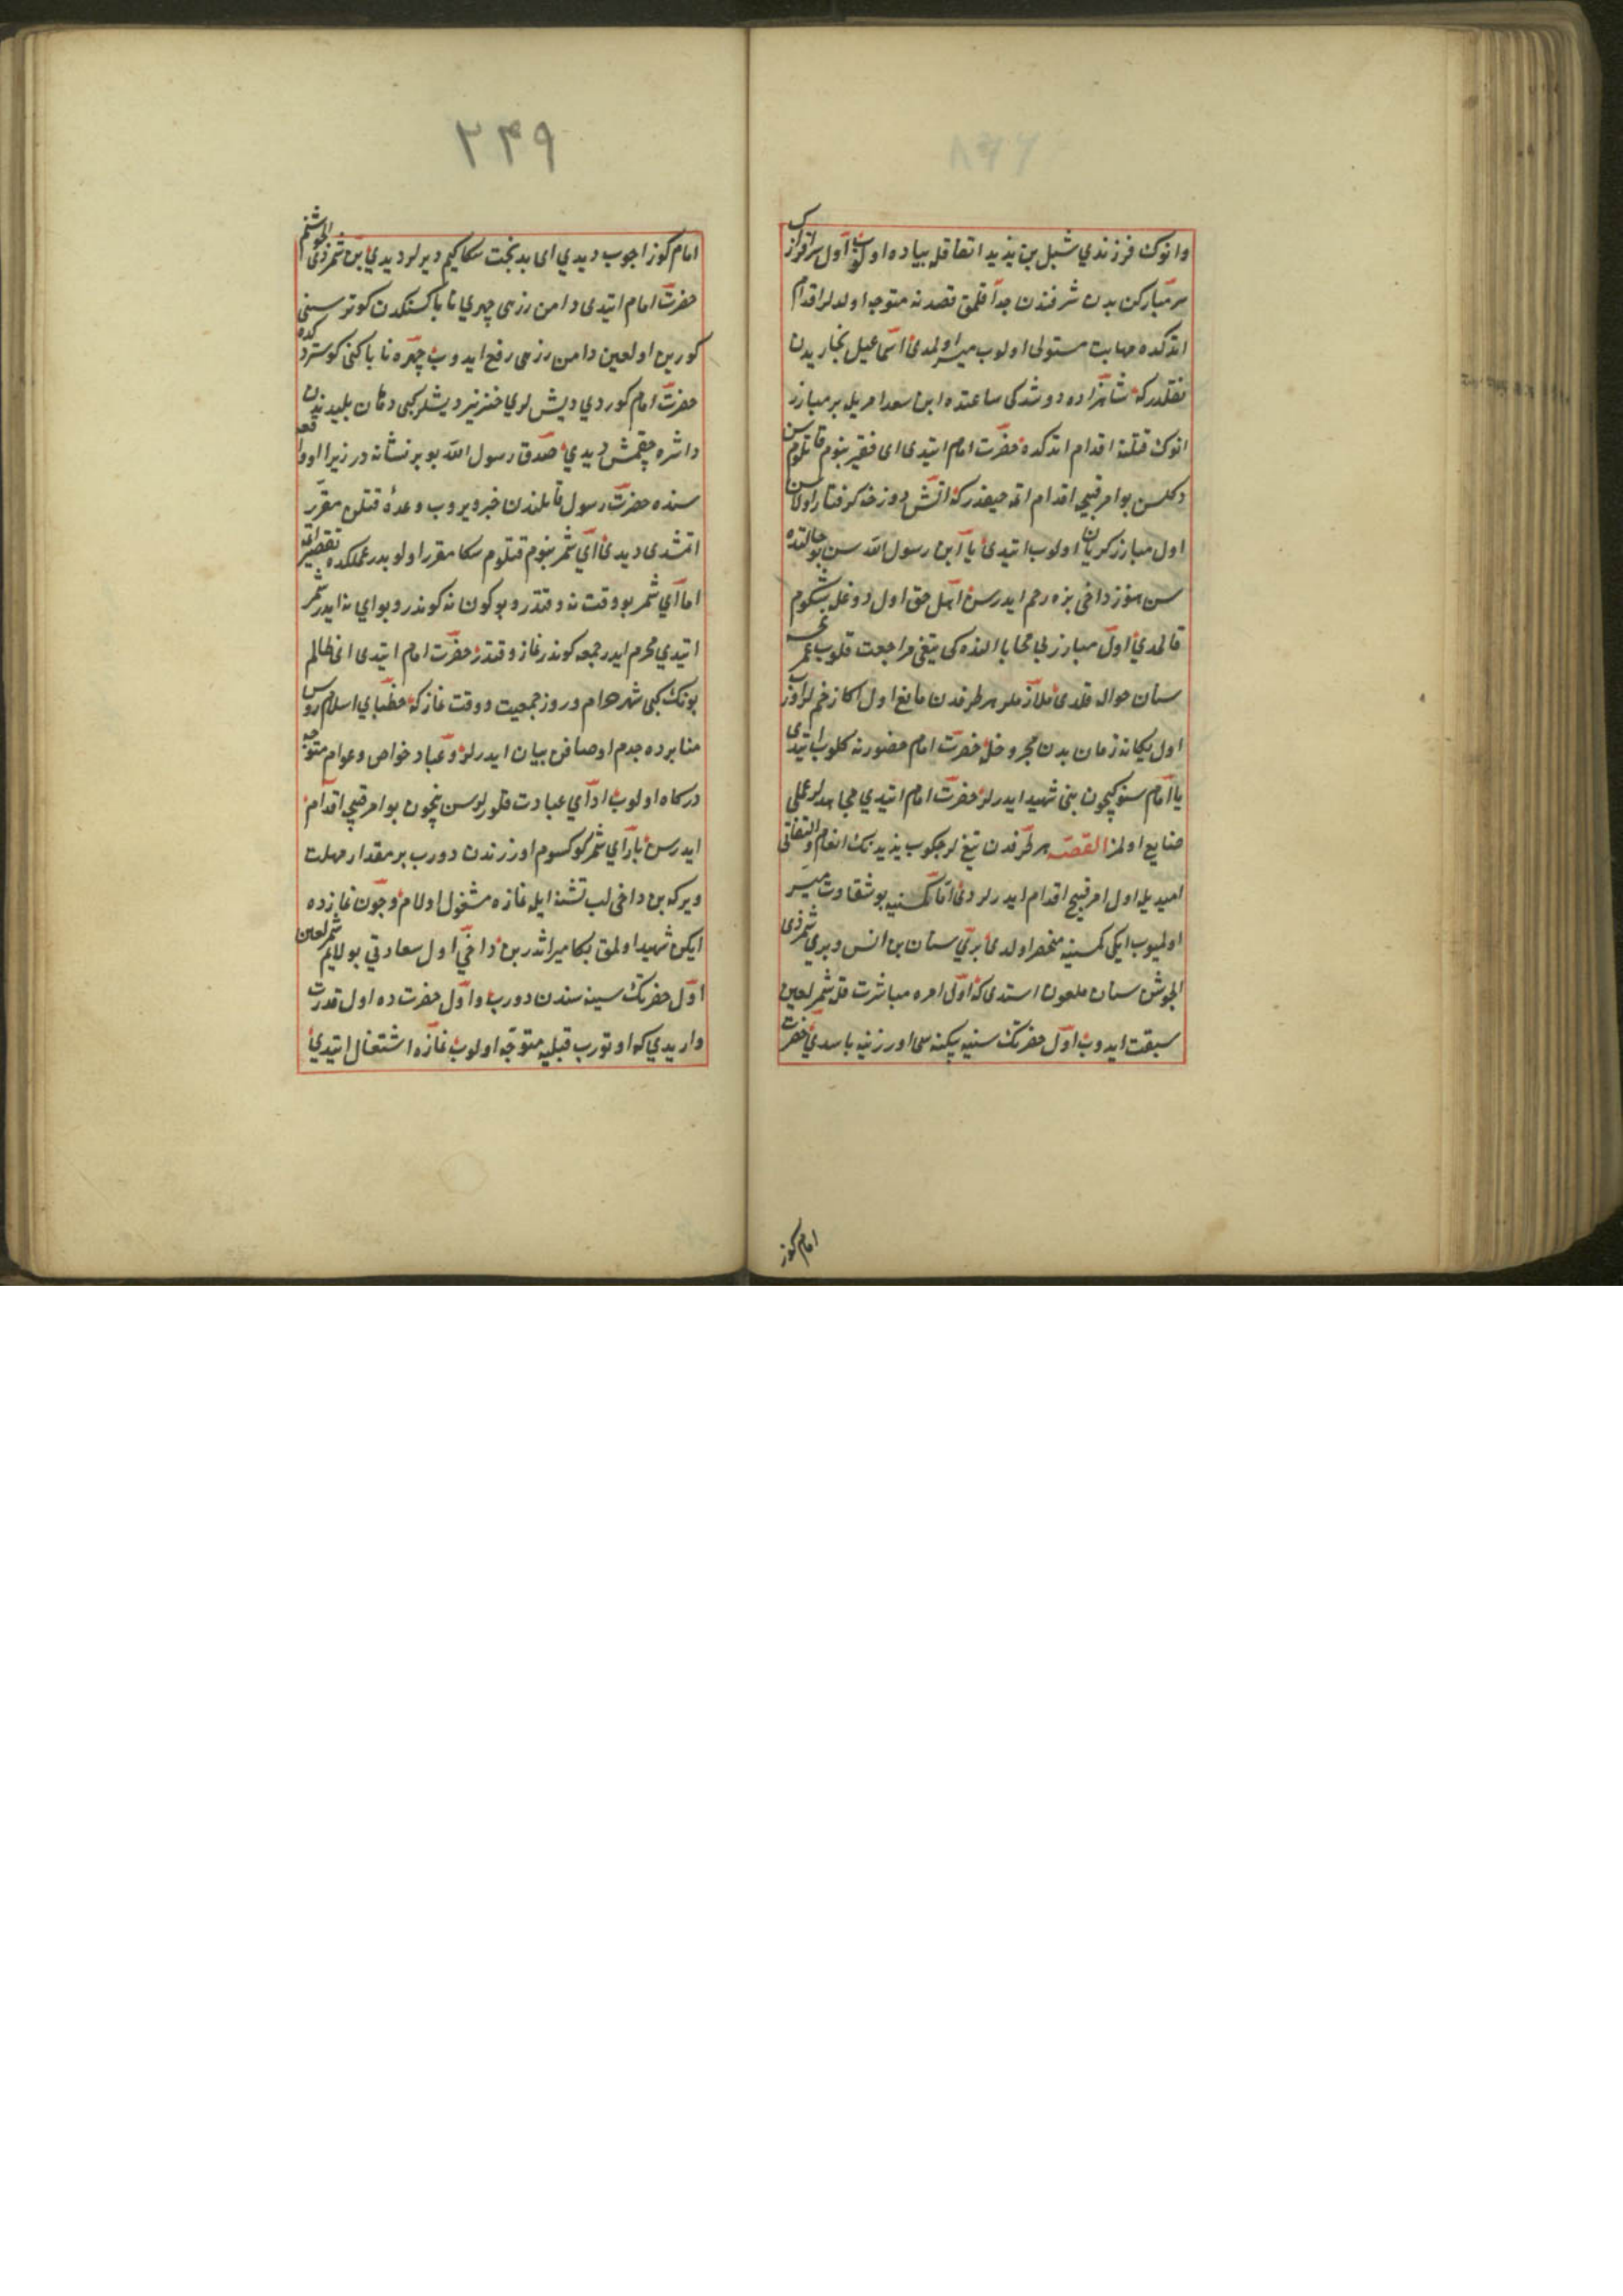 وانوك فرزندي شبل بن يزيد اتفاقله پياده اولوب اول سرافرازك
سر مباركن بدن شرفندن جدا قلمق قصدنه متوجه اولدلر اقدام
اتدكده مهابت مستولى اولوب ميسر اولمدى اسماعيل بخاريدن
نقلدركه شاهزاده دوشدكى ساعتده ابن سعد امريله بر مبارز
انوك قتلنه اقدام اتدكده حضرت امام ايتدى اى فقير بنوم قاتلوم سن
دكلسن بو امر قبيحه اقدام اتمه حيفدركه آتش دوزخه كرفتار اولاسن
اول مبارز كريان اولوب ايتدى يا ابن رسول الله سن بو حالتده
سن هنوز داخى بزه رحم ايدرسن اهل حق اول دوغله شكوم
قالمدى اول مبارز بى محابا النده كى تيغى مراجعت قلوب عمر
سنان حواله قلدى ملازملر هر طرفدن مانع اول اكا زخملر اورب
اول يكانه زمان بدن مجروحله حضرت امام حضورنه كلوب ايتدى
يا امام سنوكيچون بنى شهيد ايدرلر حضرت امام ايتدي مجاهدلر عملى
ضايع اولمز القصه هر طرفدن تيغلر چكوب يزيدنك انعام والتفاتى
اميديله اول امر قبيح اقدام ايدرلردى اما كمسنيه بو شقاوت ميسر
اولميوب ايكى كمسنيه منحصر اولدى برى سنان بن انس وبرى شمر ذى
الجوش سنان ملعون استدى كه اولى امره مباشرت قله شمر لعين
سبقت ايدوب اول حضرتك سينه بيكينه سى اوزرنيه باسدي حضرت
امام كوز
٢٤٩
امام كوز اچوب ديدي اى بدبخت سكا كيم ديرلر ديدي بن شمر ذى الجوشنم
حضرت امام ايتدى دامن زرهى چهرى ناپاكنكدن كوتر سنى
كورين اول لعين دامن زرهى رفع ايدوب چهره ناپاكنى كوستردكده
حضرت امام كوردي ديشلري خنزير ديشلر كبى دهان پليديندن
داشره چقمش ديدي صدق رسول الله بو بر نشانه در زيرا اول واقعه
سنده حضرت رسول قاتلندن خبر ويروب وعده قتلن مقرر
اتمشدى ديدى اي شمر بنوم قتلوم سكا مقرر اولوبدر عملكده تقصير اتمه
اما اي شمر بو وقت نه وقتدر وبو كون نه كوندر وبو اي نه ايدر شمر
ايتدي محرم ايدر جمعه كوندر نماز وقتدر حضرت امام ايتدى اى ظالم
بونك كبى شهر حرام وروز جمعيت ووقت نمازكه خطباي اسلام رؤس
منابرده جدم اوصافن بيان ايدرلر وعباد خواص وعوام متوجه
دركاه اولوب اداي عبادت قلورلر سن نيچون بو امر قبيحه اقدام
ايدرسن بارى اي شمر كوكسوم اوزرندن دورب بر مقدار مهلت
ويركه بن داخى لب تشنه ايله نمازه مشغول اولام وچون نمازده
ايكن شهيد اولمق بكا ميراثدر بن داخي اول سعادتى بولايم شمر لعين
اول حضرتك سينه سندن دورب واول حضرت ده اول قدرت
واريدي كه اوتورب قبليه متوجه اولوب نمازه اشتغال ايتدي